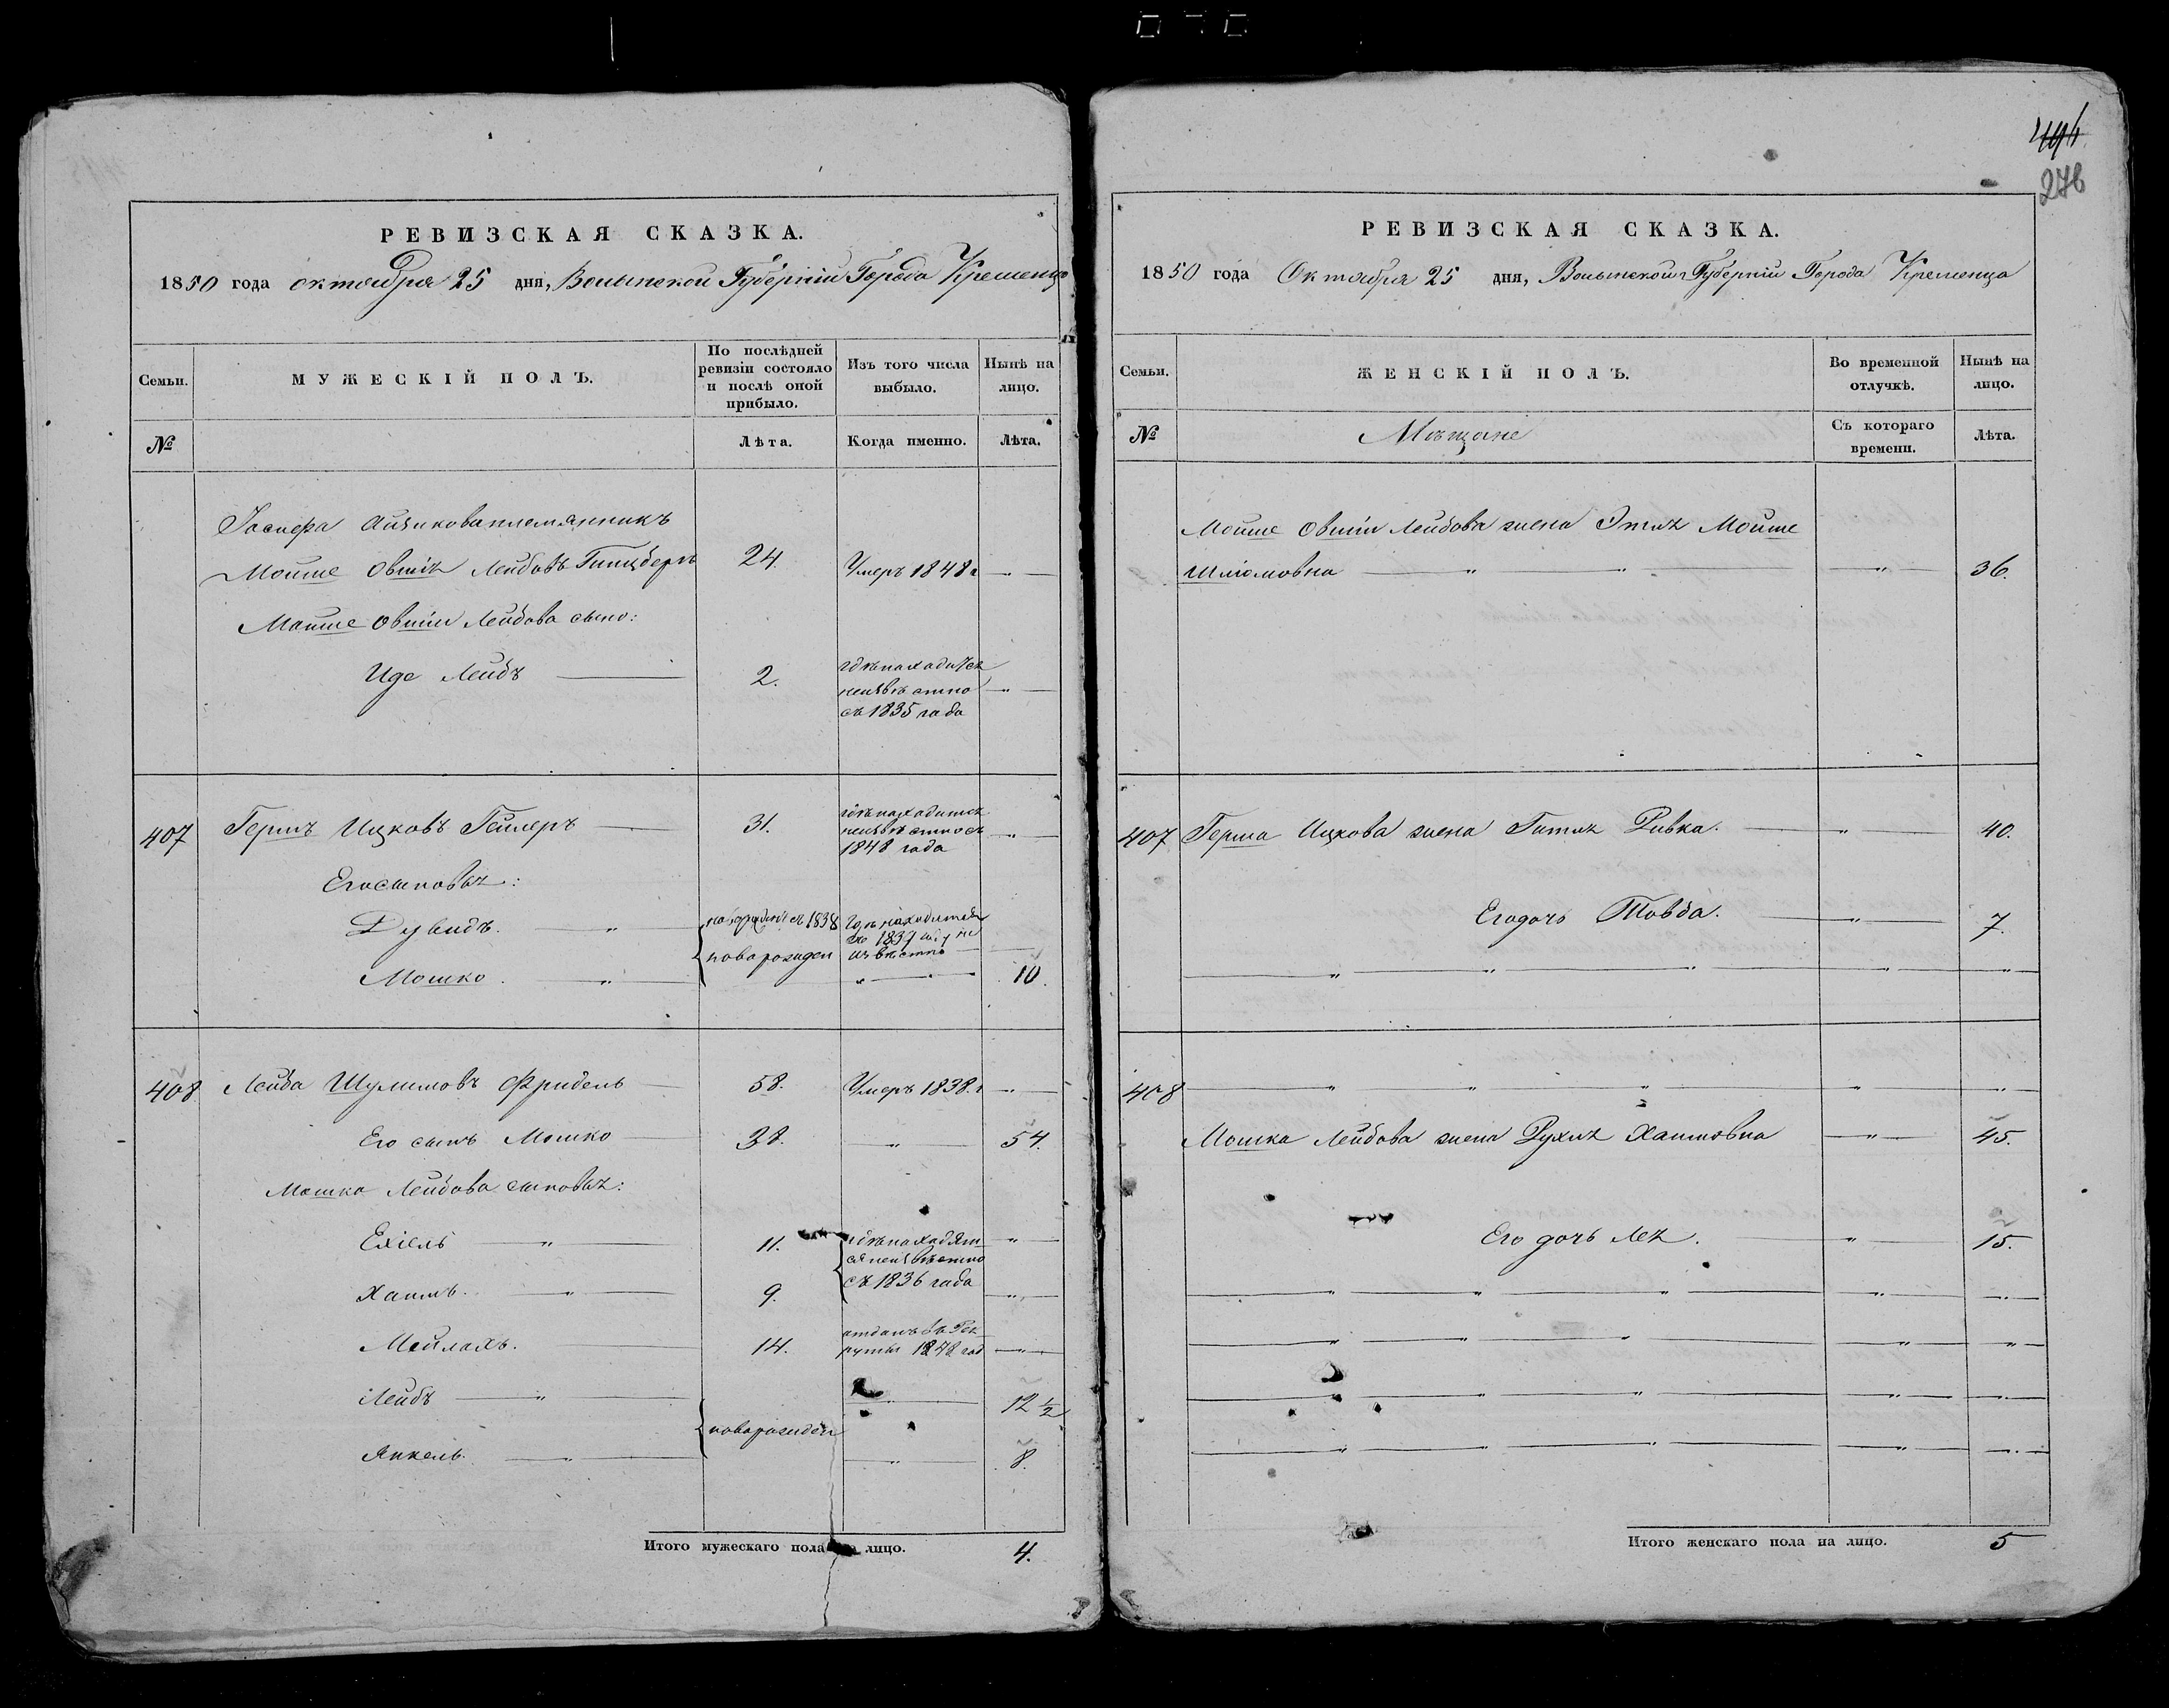 496
276
РЕВИЗСКАЯ СКАЗКА.
1850 года октября 25 дня, Волынской Губерніи Города Кременца
Семьи.
МУЖЕСКІЙ ПОЛЪ.
По послѣдней ревизіи состояло и послѣ оной прибыло.
Изъ того числа выбыло.
Нынѣ на лицо.
№
Лѣта.
Когда именно.
Лѣта.
Іосифа Айзикова племянникъ
Мойше Овшія Лейбовъ Гинцберъ 24. Умеръ 1848 г — " —
Мойше Овшіи Лейбова сыно:
Иде Лейбъ — 2. гдѣ находится
неизвѣстно — " —
съ 1835 года
407 Гершъ Ицковъ Гейлеръ — 31. гдѣ находится
неизвѣстно съ — " —
1848 года
Его сыновья:
Дувидъ. — " — 1838 Гдѣ находится
съ 1837 году не
новорожден извѣстно —
Мошко. — " — " — 10.
408 Лейба Шулимовъ Фридель — 58. Умеръ 1838. г — " —
Его сынъ Мошко — 38. — " — 54.
Мошка Лейбова сыновья:
Ехіель — " — 11. гдѣ находят — " —
ся неизвѣстно
съ 1836 года
Хаимъ. — " — 9. — " —
Мейлахъ. — 14. отданъ въ Рек
руты 1848 год — " —
Лейбъ — " — — " — 12 ½
новорожден
Янкель. — " — — " — 8.
Итого мужескаго пола на лицо. 4.
РЕВИЗСКАЯ СКАЗКА.
1850 года Октября 25 дня, Волынской Губерніи Города Кременца
Семьи.
ЖЕНСКІЙ ПОЛЪ.
Во временной отлучкѣ.
Нынѣ на лицо.
№
Мѣщане
Съ котораго времени.
Лѣта.
Мойше Овшіи Лейбова жена Этля Мойше
Шлiомовна — " — " — — " — 36.
407 Герша Ицкова жена Гитля Ривка. — " — 40.
Его дочь Товба. — " — 7.
— " — " — " — " — " —
408 — " — " — " — " — " —
Мошка Лейбова жена Рухля Хаимовна — " — 45.
Его дочь Лея. — " — 15.
— " — " — " — " — " —
— " — " — " — " — " —
— " — " — " — " —
— " — " — " — " — " —
Итого женскаго пола на лицо. 5